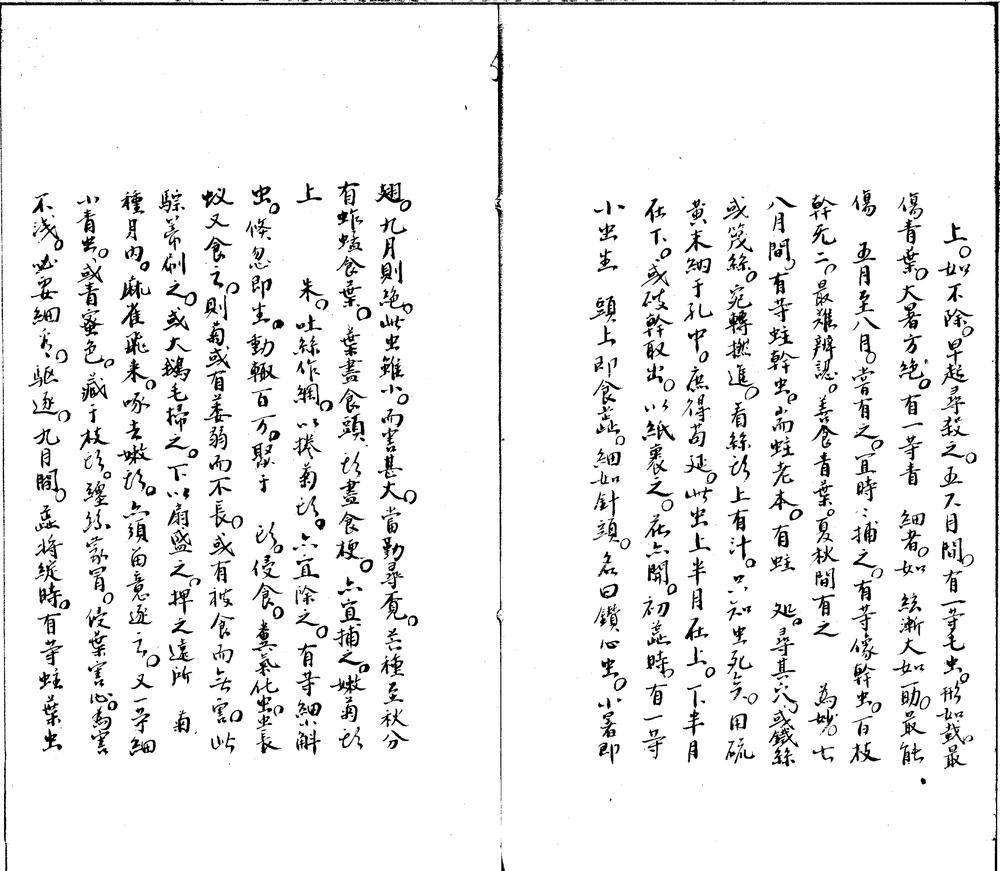 上。如不除。早起尋殺之。五六月間。有一等毛虫。形如蛓。最
傷青葉。大暑方絶。有一等青　細者。如　絃漸大如筯。最能
傷　五月至八月。嘗有之。宜時〻捕之。有等像幹虫。百枝
幹死二。最難辨認。善食青葉。夏秋間有之　為妙。七
八月間。有等蛀幹虫。耑蛀老本。有蛀　処。尋其穴。或鐵絲
或篾絲。宛轉搠進。看絲頭上有汁。只知虫死矣。用硫
黃末納于孔中。庶得苟延。此虫上半月在上。下半月
在下。或破幹取出。以紙裹之。花亦開。初蕊時。有一等
小虫生　頭上即食蕊。細如針頭。名曰鑽心虫。小暑即
翅。九月則絶。此虫雖小。而害甚大。當勤尋覔。芒種至秋分
有蚱蜢食葉。葉盡食頭。頭盡食梗。亦宜捕之。嫩菊頭
上　朱。吐絲作綱。以捲菊頭。亦宜除之。有等細小蚪
虫。倏忽即生。動輙百万。聚于　頭。侵食。糞氣化虫。虫長
蚁又食之。則菊或有萎弱而不長。或有被食而無害。此
騌箒刷之。或大鵝毛掃之。下以扇盛之。押之遠所　菊
種月內。麻雀飛来。啄去嫩頭。亦須留意逐之。又一等細
小青虫。或青蜜色。藏于枝頭。纏絲蒙冒。侵葉害心。為害
不浅。必要細看。驅逐。九月間。蕊将綻時。有等蛀葉虫